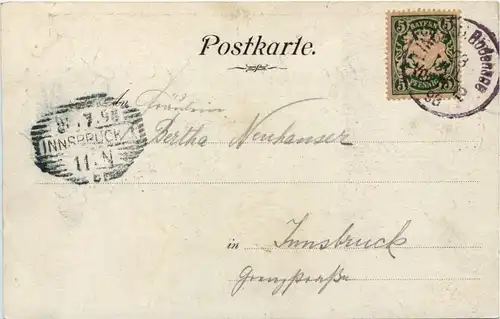 Postkarte.
BAYERN
5 5
PFENNIG
Bodensee
98
7.98
INNSBRUCK
11·N
Fräulein
Bertha Neuhauser
in Innsbruck
Grenzstraße